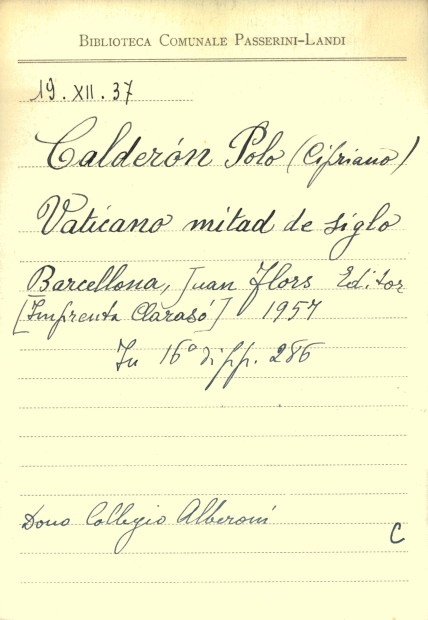 BIBLIOTECA COMUNALE PASSERINI-LANDI
19.XII.37
Calderón Polo (Cipriano)
Vaticano mitad de siglo
Barcellona, Juan Flors Editor
[Imprenta Clarasó] 1957
In 16° di pp. 286
Dono Collegio Alberoni
C